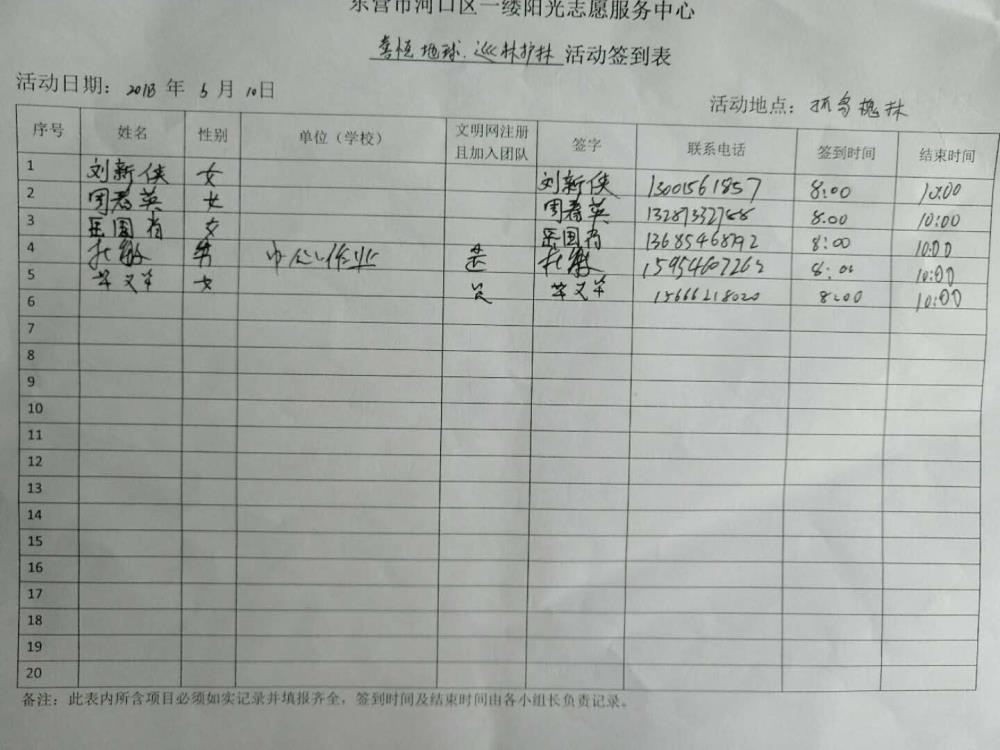 东营市河口区一缕阳光志愿服务中心
地球.巡林护林 活动签到表
活动日期: 2018 年 5 月 10 日
活动地点: 孤岛槐林
序号 姓名 性别 单位（学校） 文明网注册且加入团队 签字 联系电话 签到时间 结束时间
1 刘新侠 女 刘新侠 13001561857 8:00 10:00
2 周春英 女 周春英 8:00 10:00
3 国 女 国 8:00 10:00
4 男 中心作业 是 8:00 10:00
5 女 15666218020 8:00 10:00
6
7
8
9
10
11
12
13
14
15
16
17
18
19
20
备注：此表内所含项目必须如实记录并填报齐全，签到时间及结束时间由各小组长负责记录。